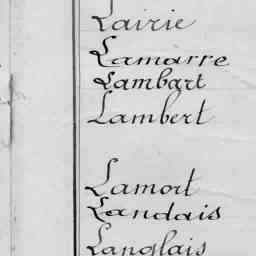 Lairie
Lamarre
Lambart
Lambert
Lamort
Landais
Langlais